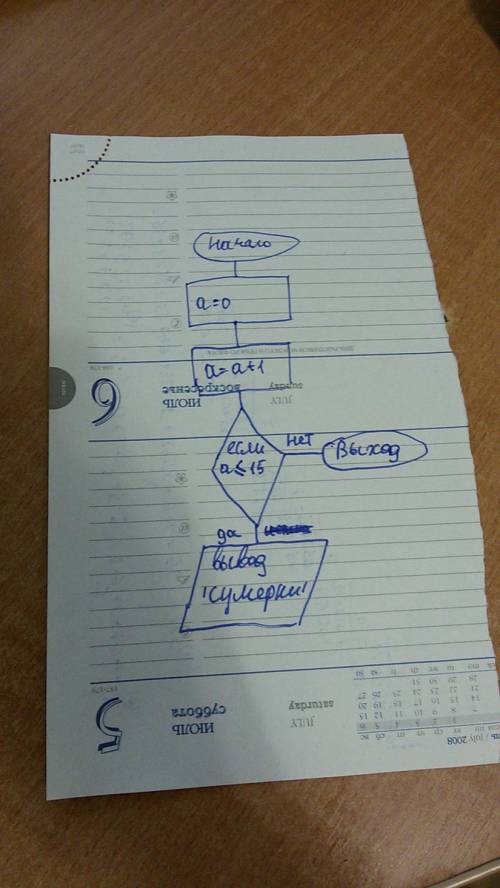 начало
a=0
a=a+1
если
a≤15
нет
Выход
да
вывод
'сумерки'
6
ИЮЛЬ
воскресенье
JULY
sunday
5
ИЮЛЬ
суббота
JULY
saturday
187-179
july 2008